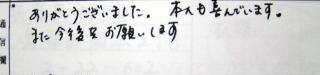 ありがとうございました。本人も喜んでいます。
また今後をお願いします
通信欄